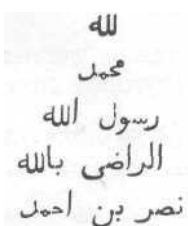 لله
محمد
رسول الله
الراضى بالله
نصر بن احمد